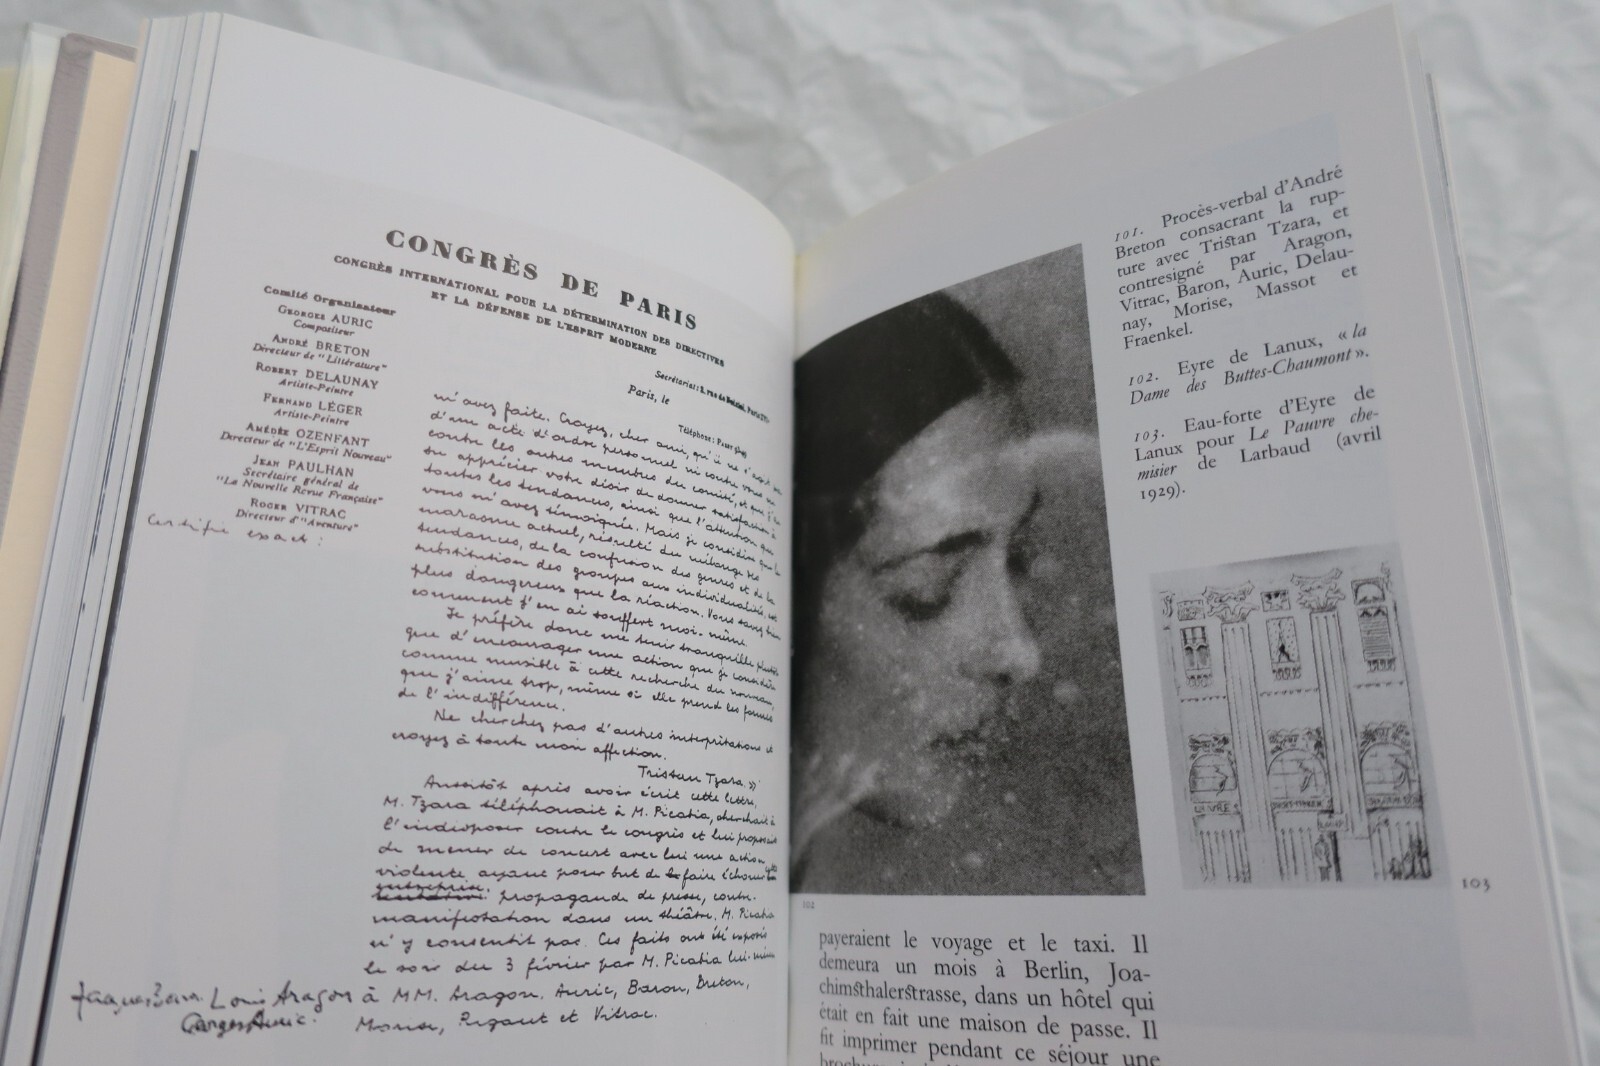 CONGRÈS DE PARIS
CONGRÈS INTERNATIONAL POUR LA DÉTERMINATION DES DIRECTIVES
ET LA DÉFENSE DE L'ESPRIT MODERNE
Comité Organisateur
GEORGES AURIC
Compositeur
ANDRÉ BRETON
Directeur de "Littérature"
ROBERT DELAUNAY
Artiste-Peintre
FERNAND LÉGER
Artiste-Peintre
AMÉDÉE OZENFANT
Directeur de "L'Esprit Nouveau"
JEAN PAULHAN
Secrétaire général de
"La Nouvelle Revue Française"
ROGER VITRAC
Directeur d'"Aventure"
Certifié exact :
Secrétariat :
Paris, le
Téléphone :
m'avez faite. Croyez, cher ami, qu'il ne s'agit pas
d'un acte d'ordre personnel ni contre vous ni
contre les autres membres du comité, et que j'ai
su apprécier votre désir de donner satisfaction à
toutes les tendances, ainsi que l'attention que
vous m'avez témoignée. Mais je considère que le
marasme actuel, résulté du mélange des
tendances, de la confusion des genres et de la
substitution des groupes aux individualités, est
plus dangereux que la réaction. Vous savez bien
comment j'en ai souffert moi-même.
Je préfère donc me tenir tranquille plutôt
que d'encourager une action que je considère
comme nuisible à cette recherche du nouveau,
que j'aime trop, même si elle prend les formes
de l'indifférence.
Ne cherchez pas d'autres interprétations et
croyez à toute mon affection.
Tristan Tzara. »
Aussitôt après avoir écrit cette lettre,
M. Tzara téléphonait à M. Picabia, cherchait à
l'indisposer contre le congrès et lui proposait
de mener de concert avec lui une action
violente ayant pour but de faire échouer cette
entreprise. propagande de presse, contre-
manifestation dans un théâtre. M. Picabia
n'y consentit pas. Ces faits ont été exposés
le soir du 3 février par M. Picabia lui-même
à MM. Aragon, Auric, Baron, Breton,
Morise, Rigaut et Vitrac.
Jacques Baron Louis Aragon
Georges Auric.
101. Procès-verbal d'André
Breton consacrant la rup-
ture avec Tristan Tzara, et
contresigné par Aragon,
Vitrac, Baron, Auric, Delau-
nay, Morise, Massot et
Fraenkel.
102. Eyre de Lanux, « la
Dame des Buttes-Chaumont ».
103. Eau-forte d'Eyre de
Lanux pour Le Pauvre che-
misier de Larbaud (avril
1929).
LOUVRE
103
102
payeraient le voyage et le taxi. Il
demeura un mois à Berlin, Joa-
chimsthalerstrasse, dans un hôtel qui
était en fait une maison de passe. Il
fit imprimer pendant ce séjour une